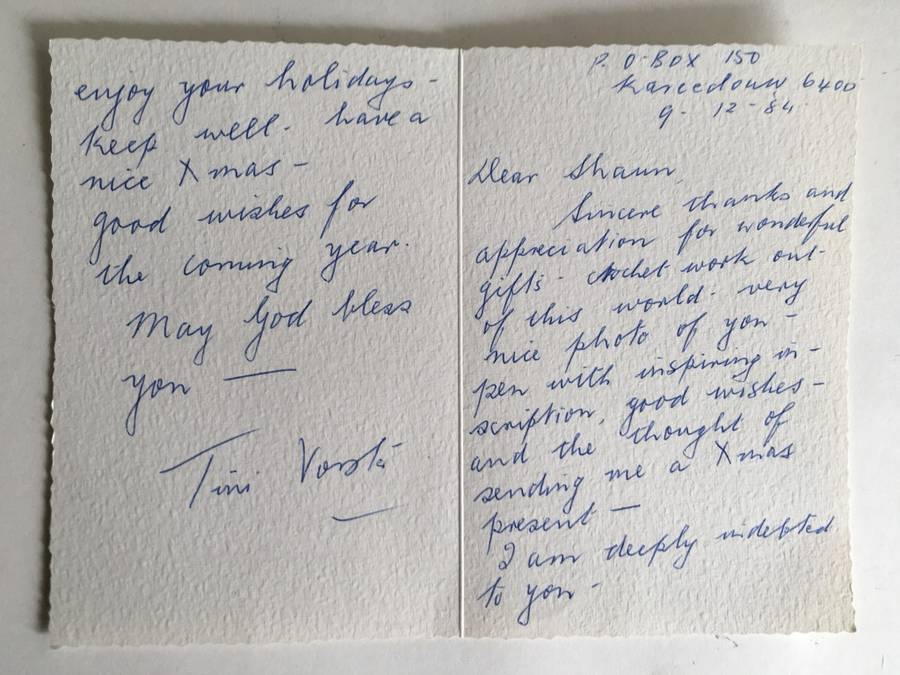 P. O. BOX 150
Kareedouw 6400
9 - 12 - 84
Dear Shaun,
Sincere thanks and
appreciation for wonderful
gifts - crochet work out-
of this world. very
nice photo of you -
pen with inspiring in-
scription, good wishes -
and the thought of
sending me a Xmas
present —
I am deeply indebted
to you -
enjoy your holidays -
keep well. have a
nice Xmas -
good wishes for
the coming year.
May God bless
you —
Tini Vorster